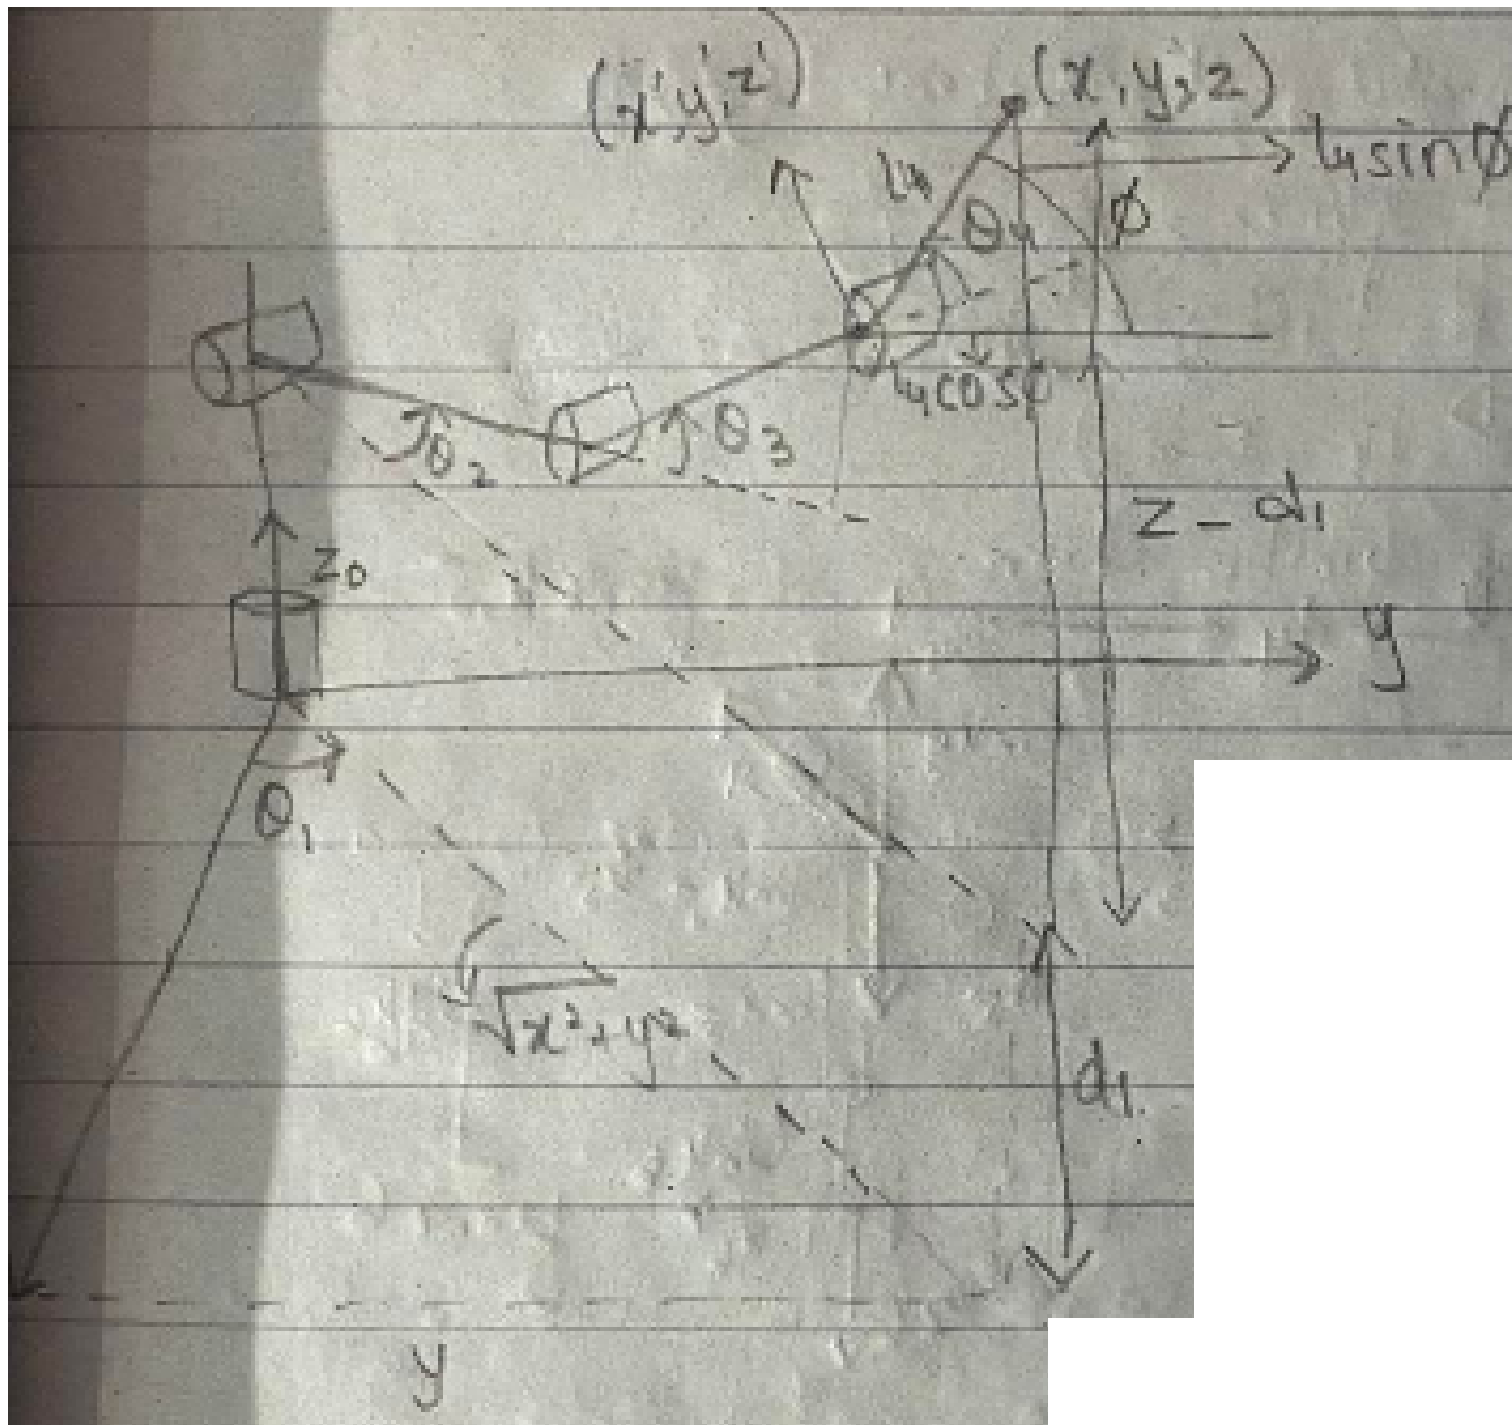 (x', y', z')
(x, y, z)
l4
l4 sinϕ
θ4
ϕ
l4 cosϕ
θ2
θ3
z - d1
z0
y
θ1
√x²+y²
d1
y